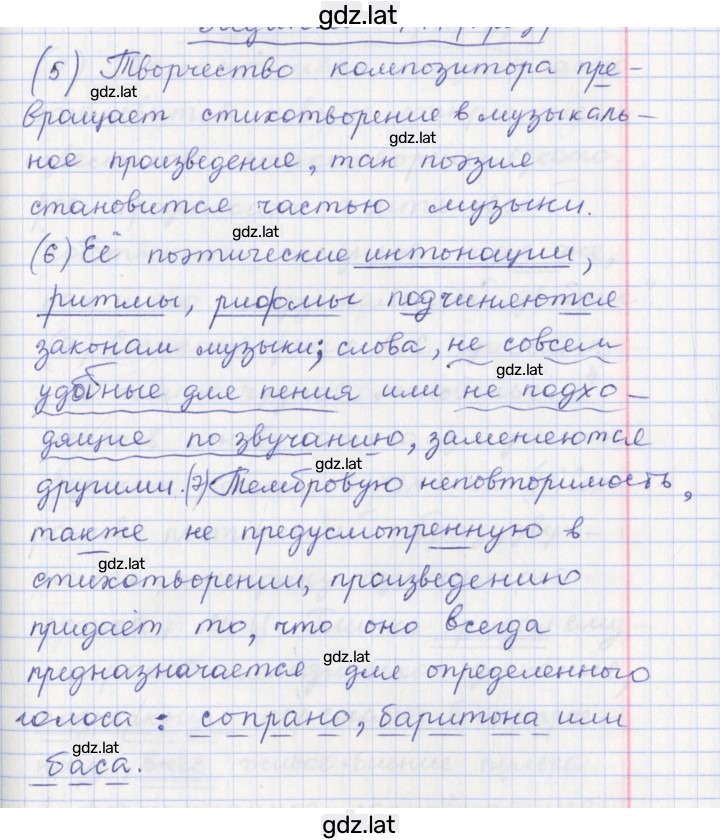 gdz.lat
(5) Творчество композитора пре-
gdz.lat
вращает стихотворение в музыкаль-
gdz.lat
ное произведение, так поэзия
становится частью музыки.
gdz.lat
(6) Её поэтические интонации,
ритмы, рифмы подчиняются
законам музыки; слова, не совсем
gdz.lat
удобные для пения или не подхо-
дящие по звучанию, заменяются
gdz.lat
другими. (7) Тембровую неповторимость,
также не предусмотренную в
gdz.lat
стихотворении, произведению
придаёт то, что оно всегда
gdz.lat
предназначается для определенного
голоса: сопрано, баритона или
gdz.lat
баса.
gdz.lat